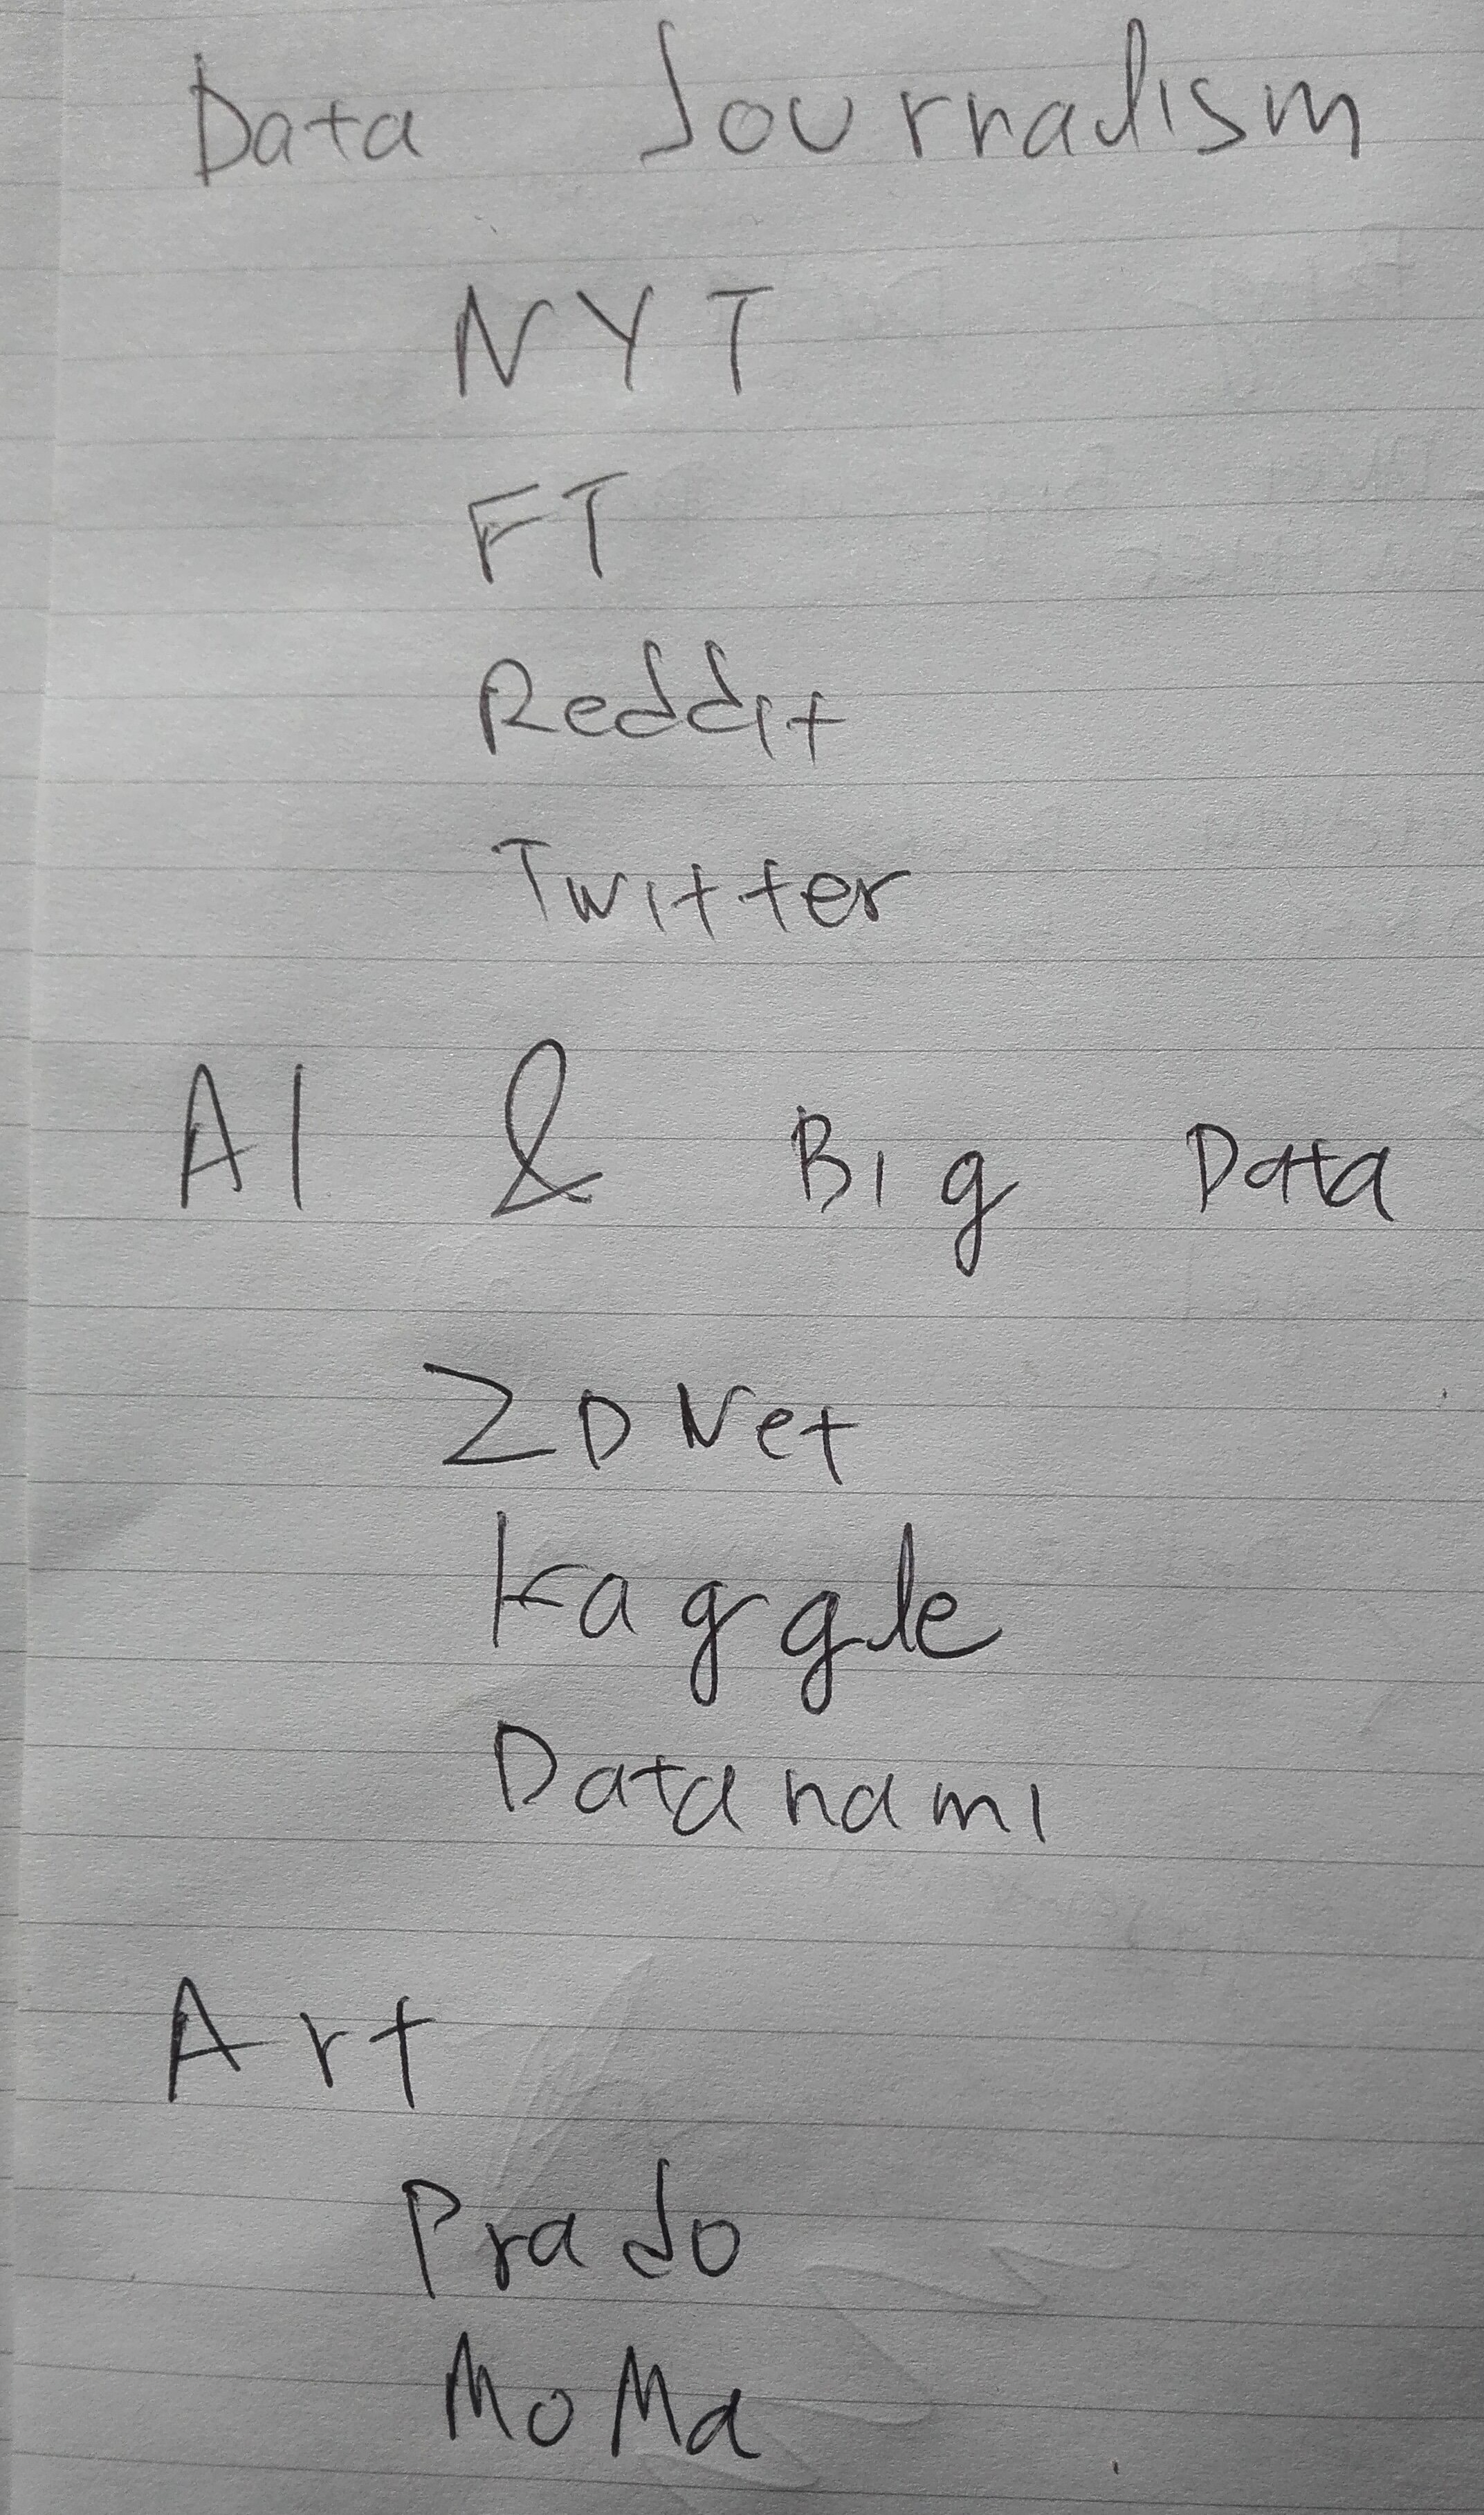 Data Journalism
NYT
FT
Reddit
Twitter
AI & Big Data
ZDNet
Kaggle
Datanami
Art
Prado
MoMa